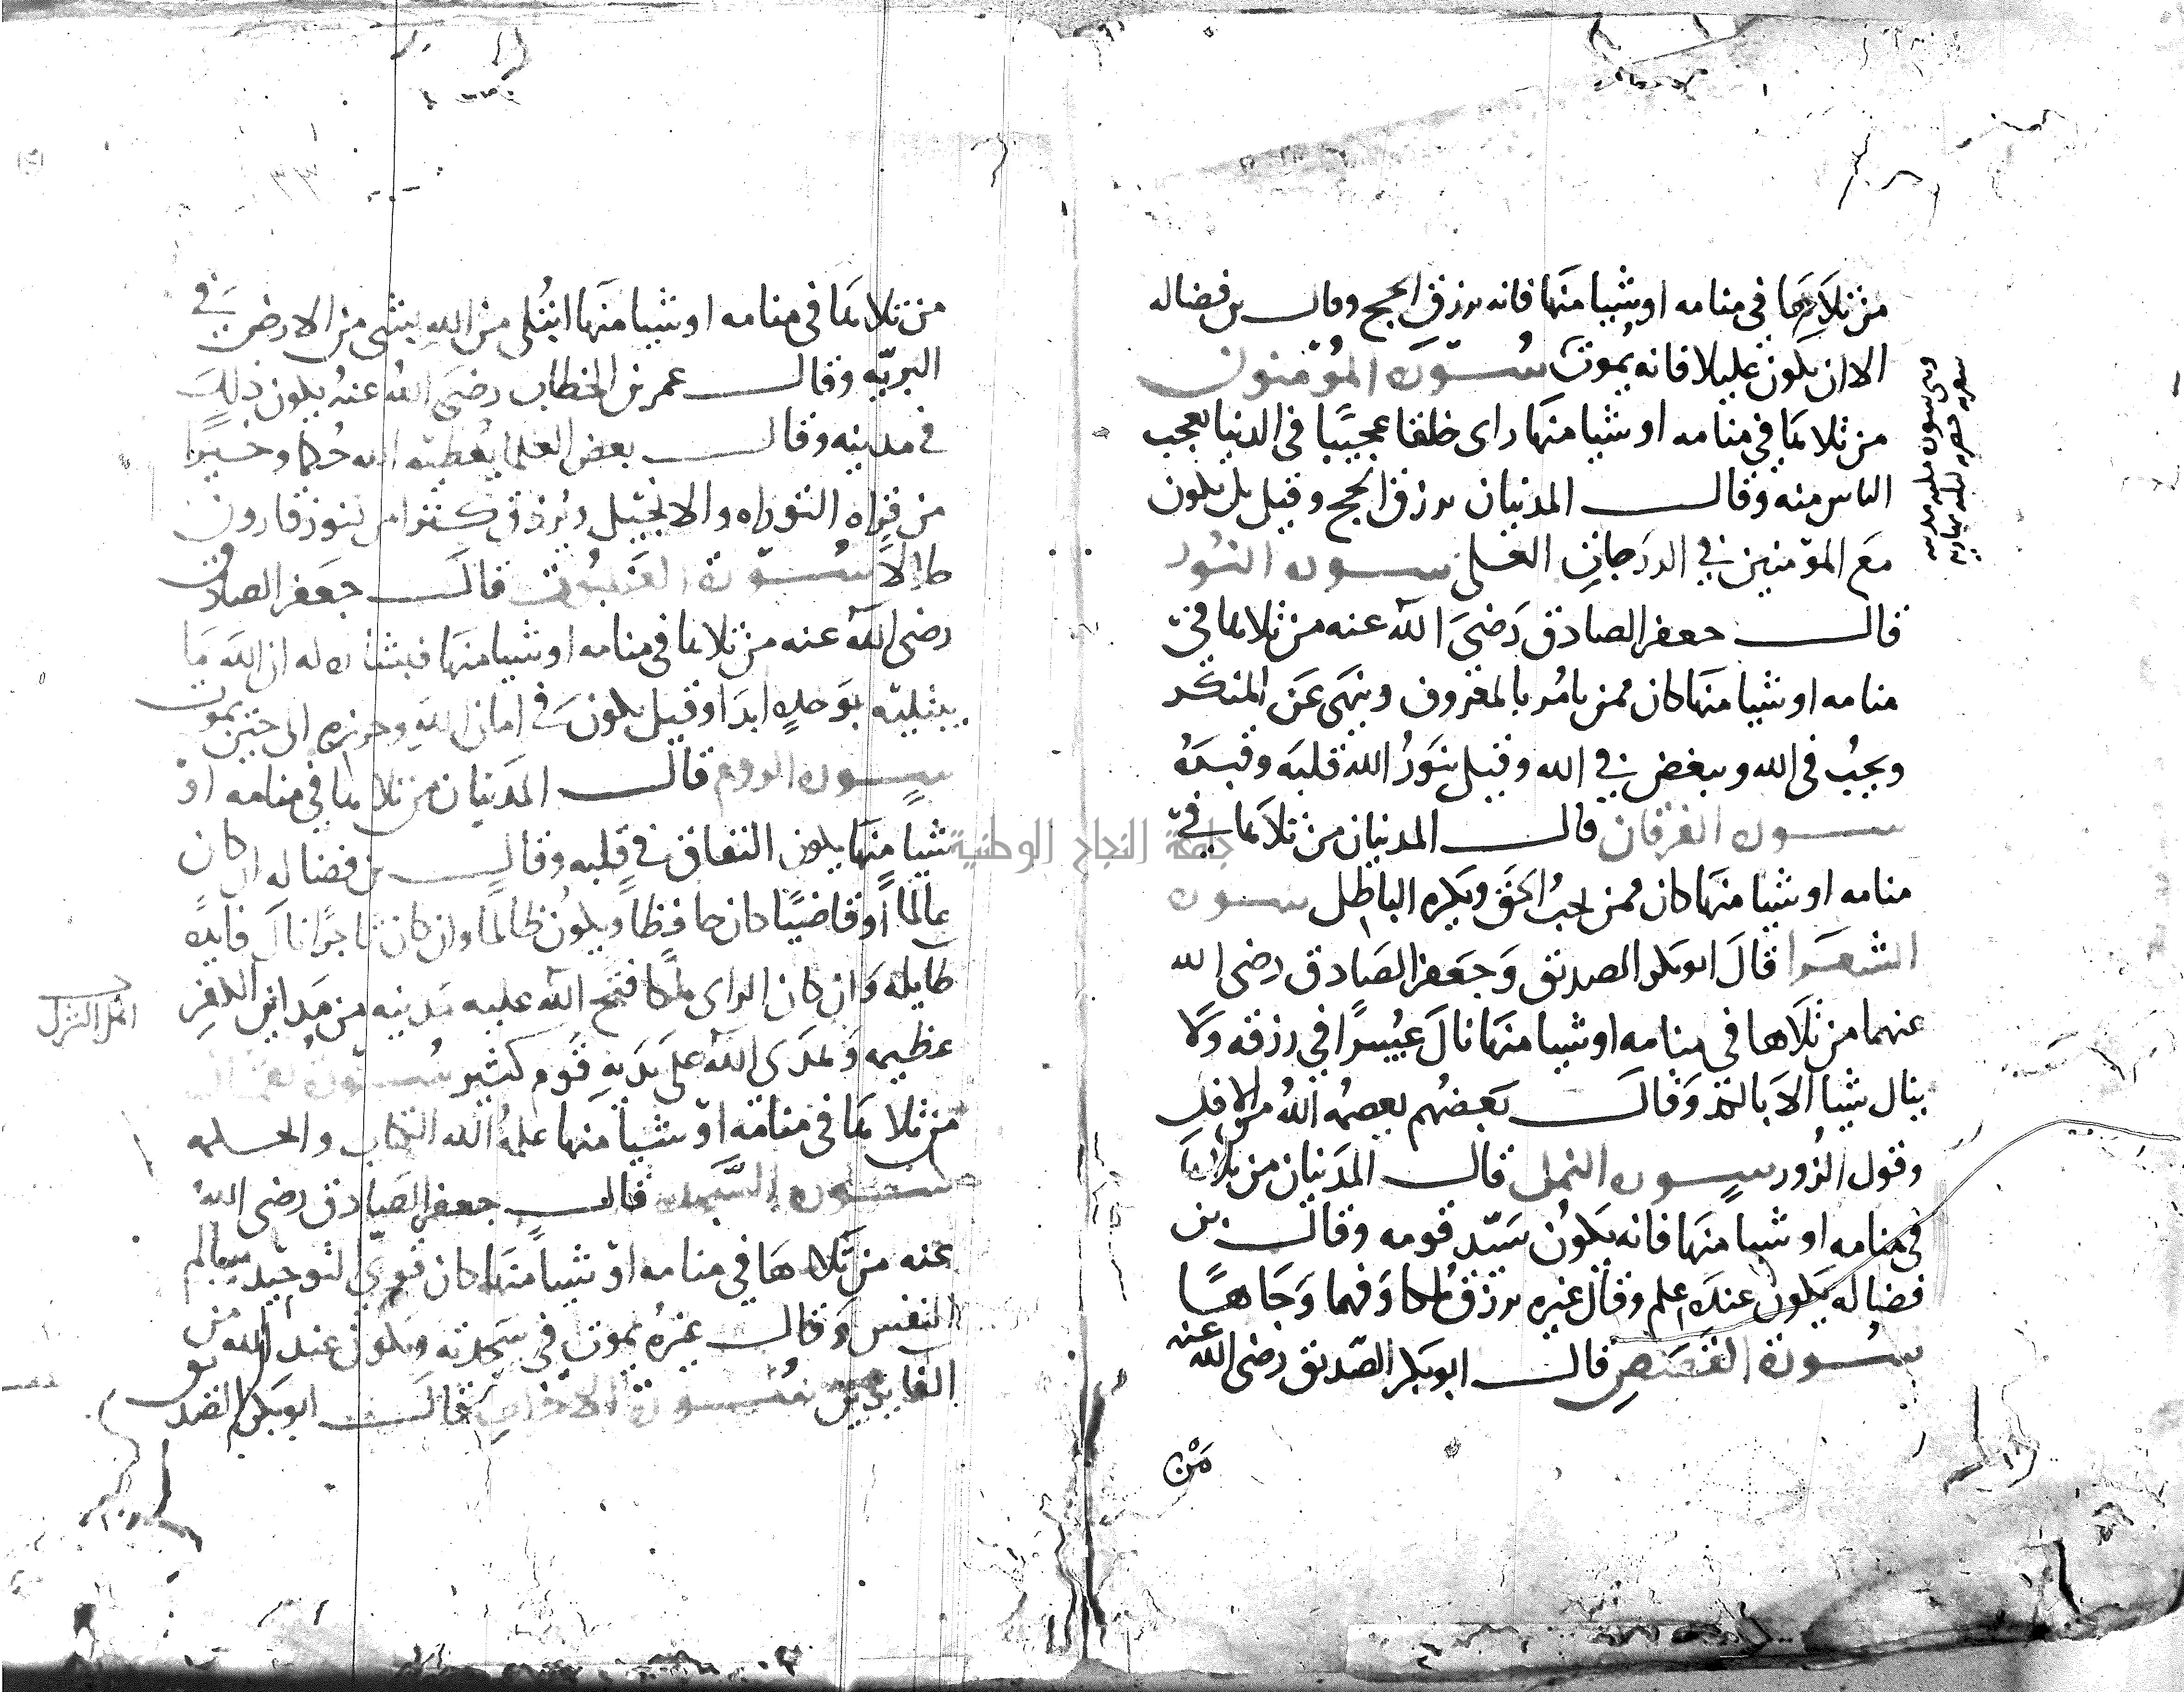 من تلاها في منامه او شيا منها فانه يرزق الحج وقال بن فضاله
الا ان يكون عليلا فانه يموت سورة المؤمنون
من تلاها في منامه او شيا منها راى خلقا عجيبا في الدنيا يعجب
الناس منه وقال المدنيان يرزق الحج وقيل بل يكون
مع المؤمنين في الدرجات العلى سورة النور
قال جعفر الصادق رضي الله عنه من تلاها في
منامه او شيا منها كان ممن يامر بالمعروف وينهى عن المنكر
ويحب في الله ويبغض في الله وقيل ينور الله قلبه وقبره
سورة الفرقان قال المدنيان من تلاها في
منامه او شيا منها كان ممن يحب الحق ويكره الباطل سورة
الشعرا قال ابو بكر الصديق وجعفر الصادق رضي الله
عنهما من تلاها في منامه او شيا منها نال عسرا في رزقه ولا
ينال شيا الا بالنكد وقال بعضهم يعصمه الله من الافك
وقول الزور سورة النمل قال المدنيان من تلاها
في منامه او شيا منها فانه يكون سيد قومه وقال بن
فضاله يكون عنده علم وقال غيره يرزق ملكا وفهما وجاها
سورة القصص قال ابو بكر الصديق رضي الله عنه
من
من تلاها في منامه او شيا منها ابتلى من الله بشى من الارض في
البرية وقال عمر بن الخطاب رضي الله عنه يكون ذلك
في مدينه وقال بعض العلما يعطيه الله حكما وخيرا
من قراه التوراه والانجيل ويرزق كنزا من كنوز قارون
حلالا سورة العنكبوت قال جعفر الصادق
رضي الله عنه من تلاها في منامه او شيا منها فبشاره له ان الله ما
يبتليه بوحده ابدا وقيل يكون في امان الله وحرزه الى حين يموت
سورة الروم قال المدنيان من تلاها في منامه او
شيا منها يكون النفاق في قلبه وقال بن فضاله ان كان
عالما او قاضيا كان حافظا ويكون ظالما وان كان تاجرا نال فايدة
طايلة وان كان الراى ملكا فتح الله عليه مدينه من مداين الكفر
عظيمه وهدى الله على يديه قوم كثير سورة لقمان
من تلاها في منامه او شيا منها علمه الله الكتاب والحكمه
سورة السجدة قال جعفر الصادق رضي الله
عنه من تلاها في منامه او شيا منها كان قوي التوحيد سالم
النفس وقال غيره يموت في سجدته ويكون عند الله من
الفايزين سورة الاحزاب قال ابو بكر الصديق
جامعة النجاح الوطنية